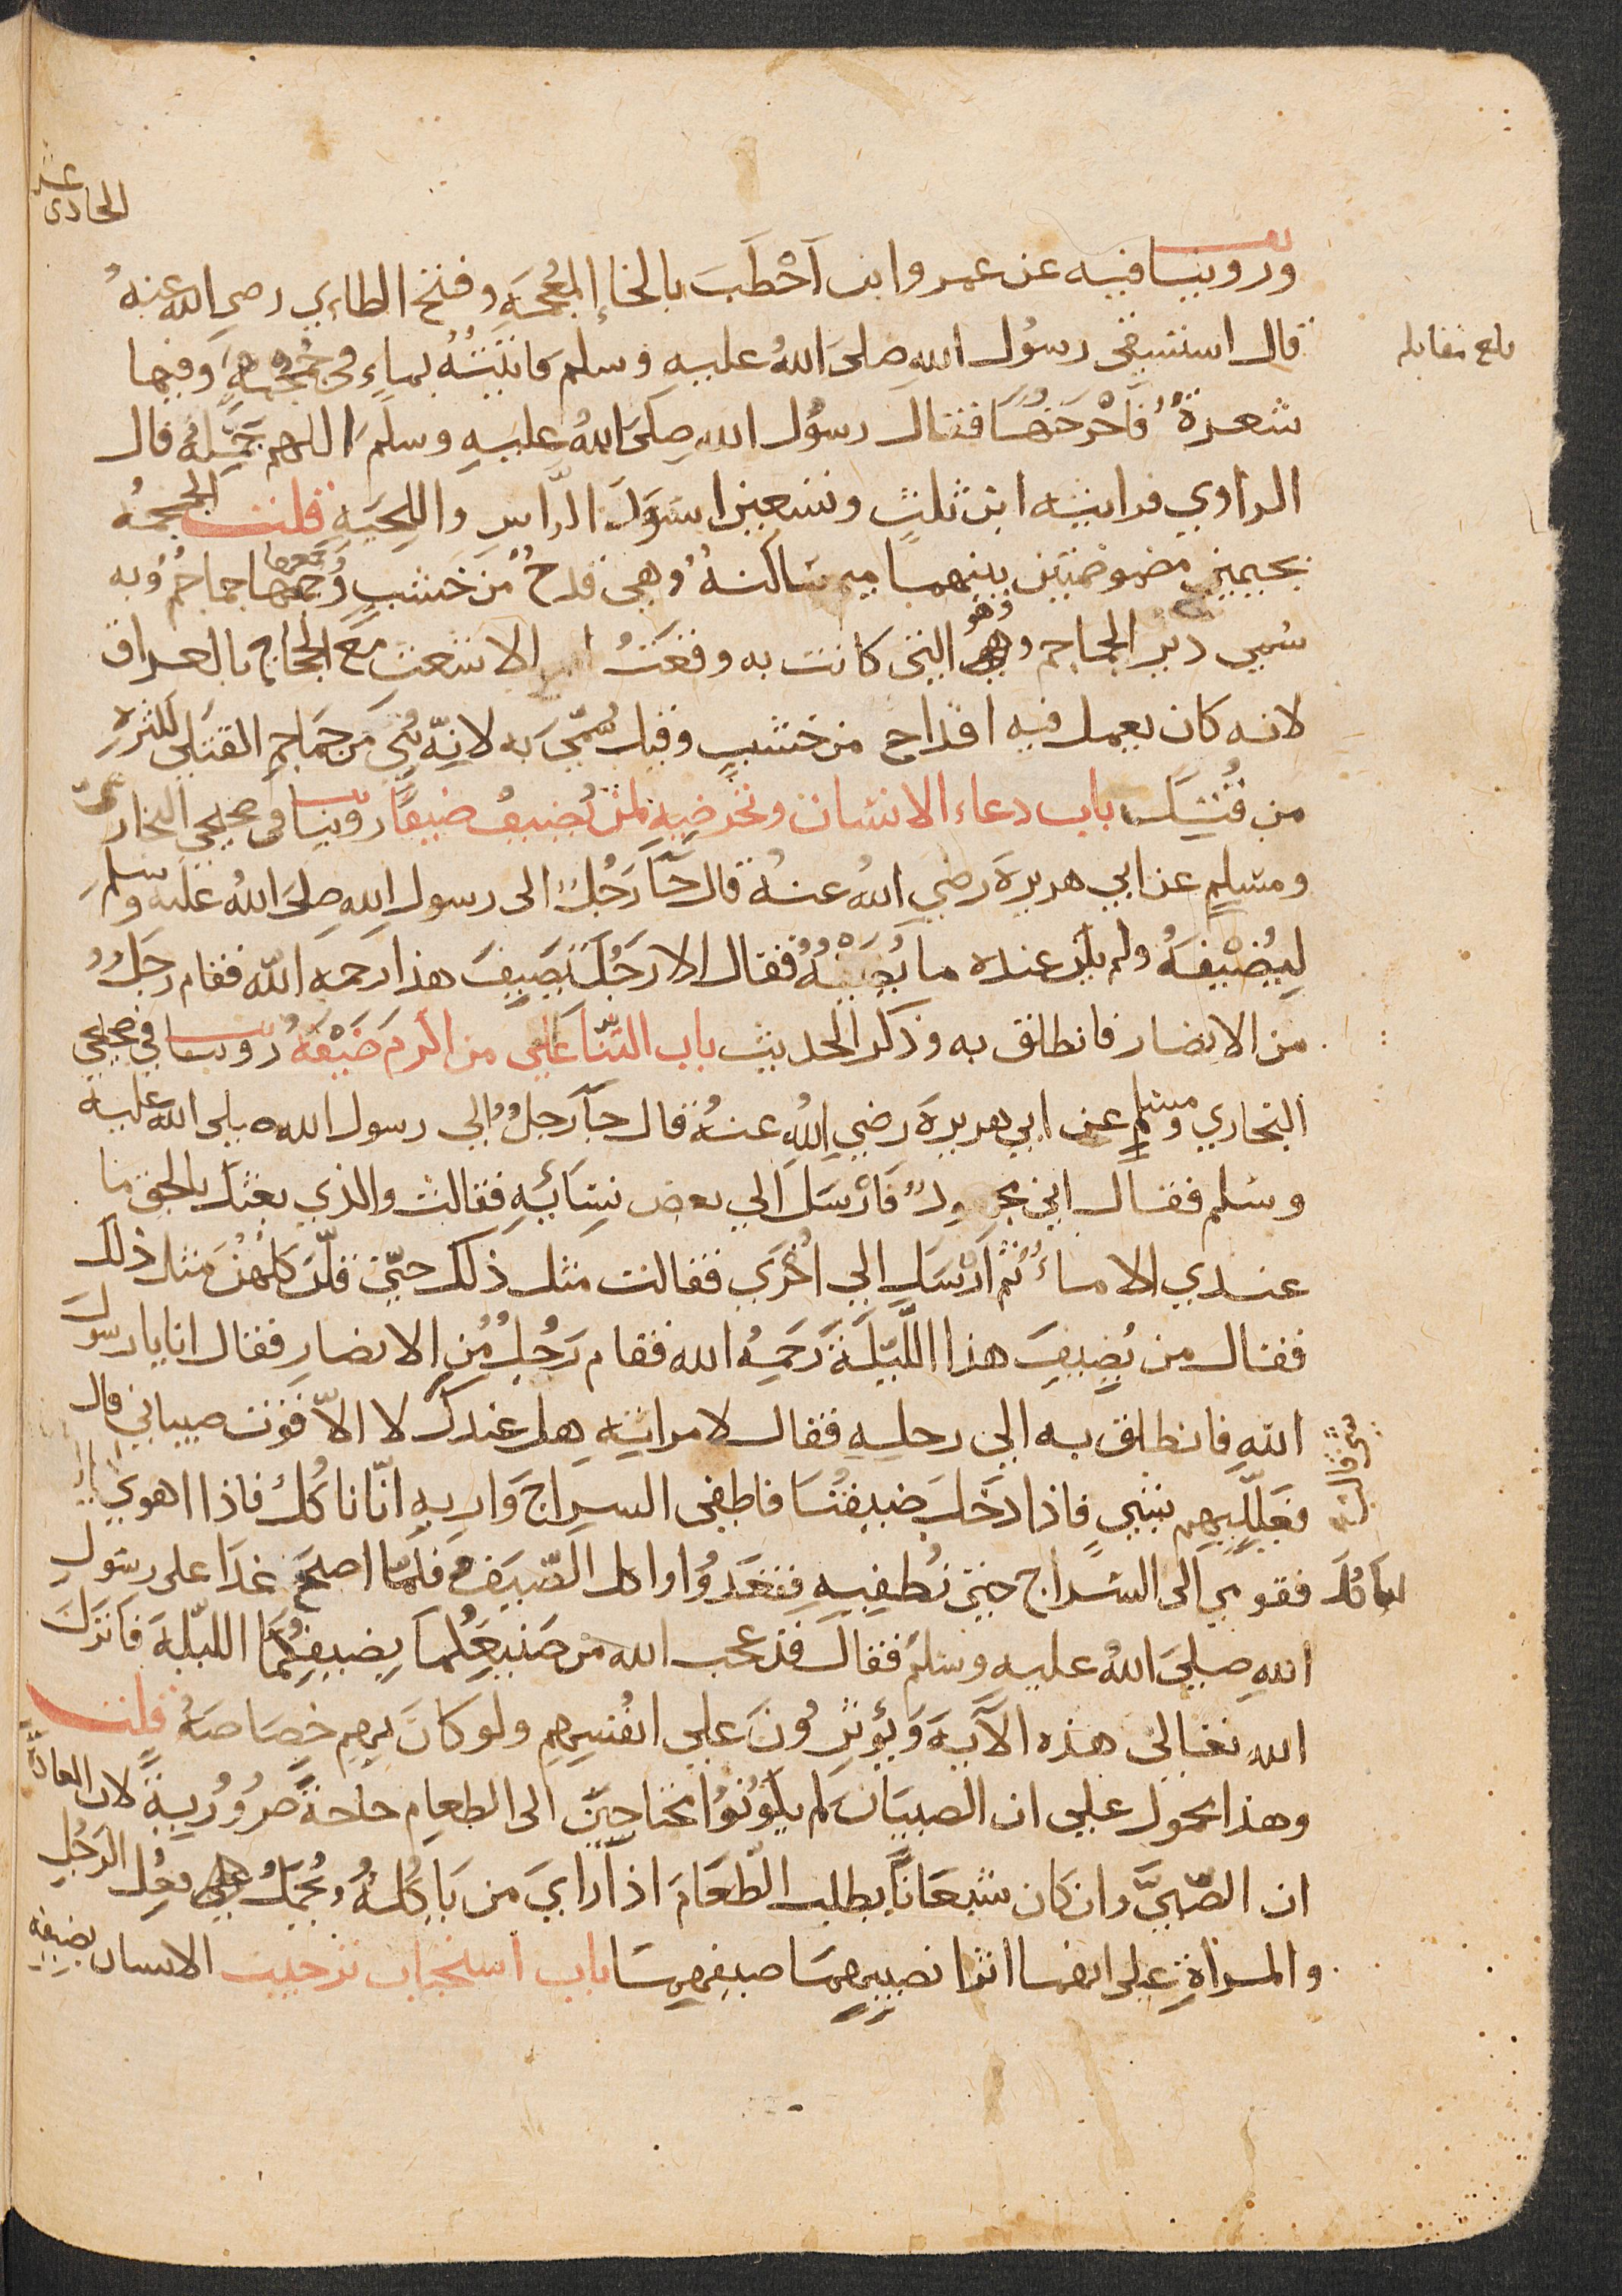 الحادي عشر
وروينا فيه عن عمرو ابن اَخْطَبَ بالخاءِ المُعجَمَةِ وفتح الطاءِ رضي الله عنهُ
بلغ مقابله
قال استسقى رسُول الله صلى اللهُ عليه وسلم فاتَيْتُهُ بماءٍ في جُمْجُمَةٍ وفيها
شعرةٌ فَاَخْرَجْتُهَا فقال رسوُل الله صلىَ اللهُ عليهِ وسلَم اللهم جَمِّلْهُ قال
الراوي فرايته ابن ثلثٍ وتسعين اسوَدَ الرَّاسِ واللِحيَةِ قلت الجمجمهُ
بجيمين مضمومتين بينهما ميم ساكنهٌ وهي قدحٌ من خشبٍ وجمعها جماجمُ وبه
سُمي دير الجماجم وهو التي كانت به وقعَتُ الاشعث مع الحجاج بالعراق
لانه كان يعمل فيه اقداح من خشبٍ وقيل سُمّيَ به لانّه بُنيَ من جماجمِ القتلى لكثرةِ
من قُتِلَ باب دعاء الانسان وتحريضِهِ لمن يُضيفُ ضيفًا روينا في صحيحي البخاري
ومسلمٍ عن ابي هريرةَ رضي اللهُ عنهُ قال جآَ رَجُلٌ الى رسول الله صلىَ اللهُ عليه وسلم
لِيُضيْفَهُ ولم يكن عنده ما يُضِيْفُهُ فقال الا رَجُلٌ يُضيفُ هذا رحمه الله فقام رجلٌ
من الانصار فانطلق به وذكر الحديث باب الثّنا على من اكرمَ ضَيْفَهُ روينا في صحيحي
البخاري ومسلمٍ عن ابي هريرةَ رضي اللهُ عنهُ قال جآَ رجلٌ الى رسول الله صلى الله عليه
وسلم فقال اني مجهودٌ فَاَرْسَلَ الى بعض نِسَائِهِ فقالت والذي بعثك بالحق ما
عندي الا ماءٌ ثم اَرْسَلَ الى اُخْرَى فقالت مثل ذلك حتّى قُلْنَ كلهُنّ مثل ذلك
فقال من يُضيفُ هذا اللَّيْلَةَ رَحِمَهُ الله فقام رَجُلٌ من الانصارِ فقال انا يا رسول
اللهِ فانطلق به الى رحلِهِ فقال لامراتِهِ هل عندك لا الاّ قوت صبياني قال
شي قالت
فعَلِّليهم بشيٍ فاذا دَخَلَ ضيفُنَا فاطفي السراجَ وَاريهِ انّا نَاكُلُ فاذا اهوى
لياكل فقومي الى السِّراج حتى تُطفيهِ فقعَدُوا واكل الضّيفُ فلمّا اصبحَ غدَا على رسُولِ
اللهِ صلىَ اللهُ عليه وسلم فقال قد عجب الله من صَنيعِكُما بِضيفِكُمَا الليلةَ فَاَنزَلَ
الله تعالى هذه الآيةَ وَيُؤثِرُونَ على انفُسِهِم ولو كانَ بهم خصَاصَةٌ قلت
وهذا محمول على ان الصبيَانَ لم يكُونُوا محتاجينَ الى الطعامِ حاجةً ضرُورِيةً لان العادَة
ان الصّبيَّ وان كان شَبعَانًا يطلب الطّعَامَ اذا رايَ من يَاكُلهُ ويُحمَلُ فِعْل الرَجُلِ
والمراةِ على انهما اثرا نصيبهمَا ضيفهمَا باب استحباب ترحيب الانسان بضيفه